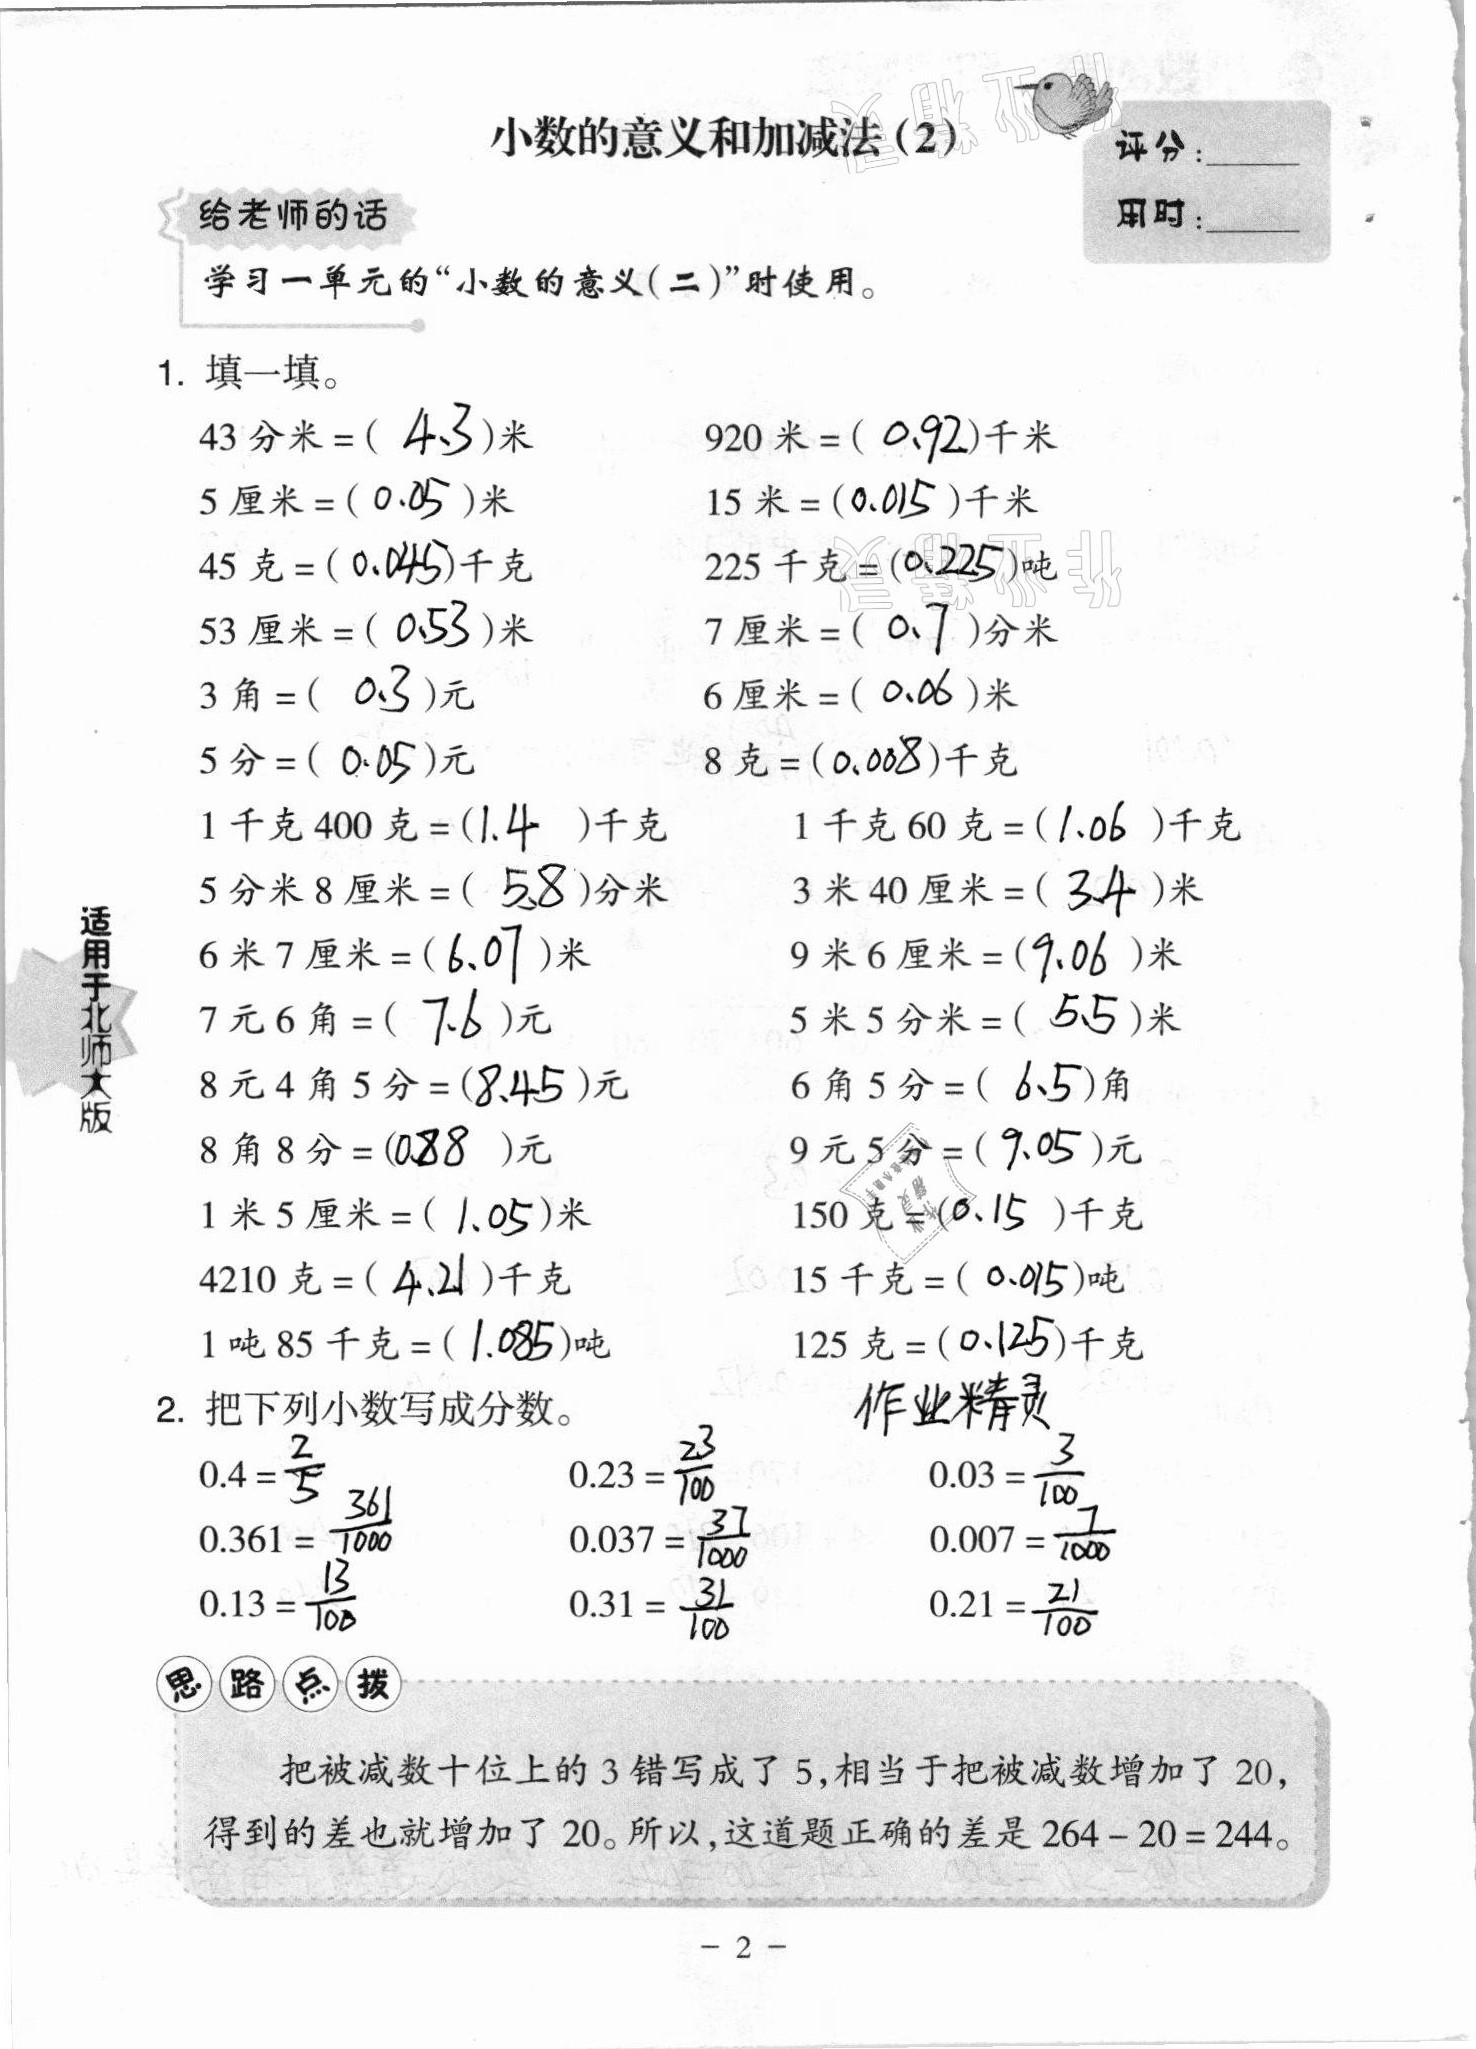 小数的意义和加减法(2)
评分:
用时:
给老师的话
学习一单元的“小数的意义(二)”时使用。
1. 填一填。
43分米=( 4.3 )米 920米=( 0.92 )千米
5厘米=( 0.05 )米 15米=( 0.015 )千米
45克=( 0.045 )千克 225千克=( 0.225 )吨
53厘米=( 0.53 )米 7厘米=( 0.7 )分米
3角=( 0.3 )元 6厘米=( 0.06 )米
5分=( 0.05 )元 8克=( 0.008 )千克
1千克400克=( 1.4 )千克 1千克60克=( 1.06 )千克
5分米8厘米=( 5.8 )分米 3米40厘米=( 3.4 )米
6米7厘米=( 6.07 )米 9米6厘米=( 9.06 )米
7元6角=( 7.6 )元 5米5分米=( 5.5 )米
8元4角5分=( 8.45 )元 6角5分=( 6.5 )角
8角8分=( 0.88 )元 9元5分=( 9.05 )元
1米5厘米=( 1.05 )米 150克=( 0.15 )千克
4210克=( 4.21 )千克 15千克=( 0.015 )吨
1吨85千克=( 1.085 )吨 125克=( 0.125 )千克
2. 把下列小数写成分数。 作业精灵
0.4=2/5 0.23=23/100 0.03=3/100
0.361=361/1000 0.037=37/1000 0.007=7/1000
0.13=13/100 0.31=31/100 0.21=21/100
思路点拨
把被减数十位上的3错写成了5,相当于把被减数增加了20,
得到的差也就增加了20。所以,这道题正确的差是264-20=244。
适用于北师大版
- 2 -
作业精灵
作业精灵